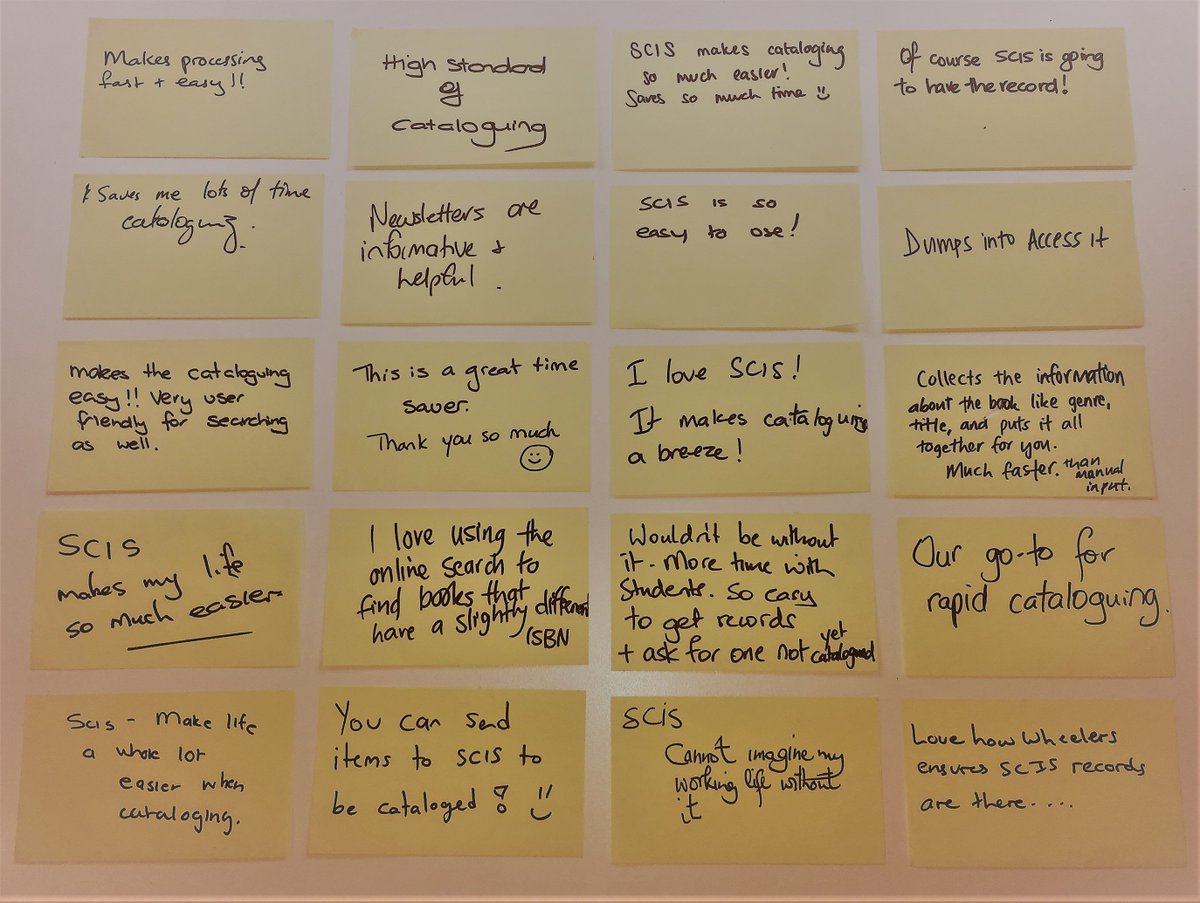 Makes processing
fast + easy!!
High Standard
of
Cataloguing
SCIS makes cataloging
so much easier!
Saves so much time
Of course SCIS is going
to have the record!
Saves me lots of time
cataloguing.
Newsletters are
informative +
helpful.
SCIS is so
easy to use!
Dumps into Access it
makes the cataloguing
easy!! Very user
friendly for searching
as well.
This is a great time
saver.
Thank you so much
I love SCIS!
It makes cataloguing
a breeze!
Collects the information
about the book like genre,
title, and puts it all
together for you.
Much faster. than
manual
input.
SCIS
makes my life
so much easier
I love using the
online search to
find books that
have a slightly different
ISBN
Wouldn't be without
it. More time with
Students. So easy
to get records
+ ask for one not yet
catalogued
Our go-to for
rapid cataloguing.
Scis - Make life
a whole lot
easier when
cataloging.
You can send
items to SCIS to
be cataloged!
SCIS
Cannot imagine my
working life without
it
Love how Wheelers
ensures SCIS records
are there....